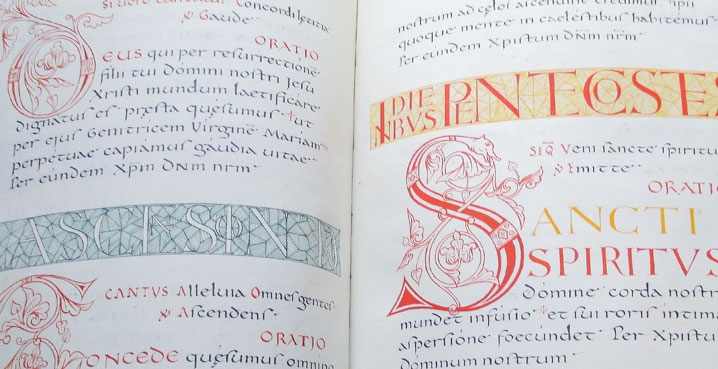 Concordi laetitia
& Gaude
ORATIO
DEUS qui per resurrectione
filii tui domini nostri Jesu
Xristi mundum laetificare
dignatus es praesta quesumus ut
per ejus Genitricem Virginē Mariam
perpetuae capiamus gaudia vitae
Per eundem Xpm̄ DN̄M nr̄m
ASCENSION
CANTUS Alleluia Omnes gentes
& Ascendens
ORATIO
CONCEDE quesumus omnipo
nostrum ad celos ascendisse
quoque mente in caelestibus habitemus
Per eundem Xpistum DN̄M nr̄m
IN DIEBUS PENTECOSTE
Veni sancte spiritu
& Emitte
ORATIO
SANCTI
SPIRITUS
Domine corda nostr
mundet infusio et sui roris intima
aspersione foecundet Per Xpistu
dominum nostrum